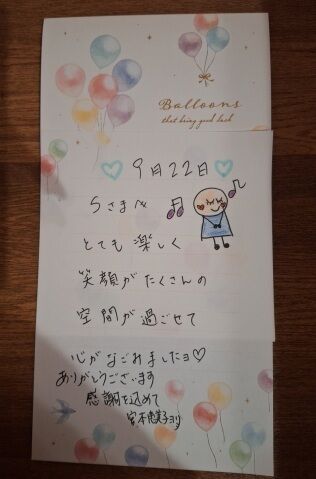 Balloons
that bring good luck
♡ 9月22日 ♡
Sさまへ
とても楽しく
笑顔がたくさんの
空間が過ごせて
心がなごみましたヨ♡
ありがとうございます
感謝を込めて